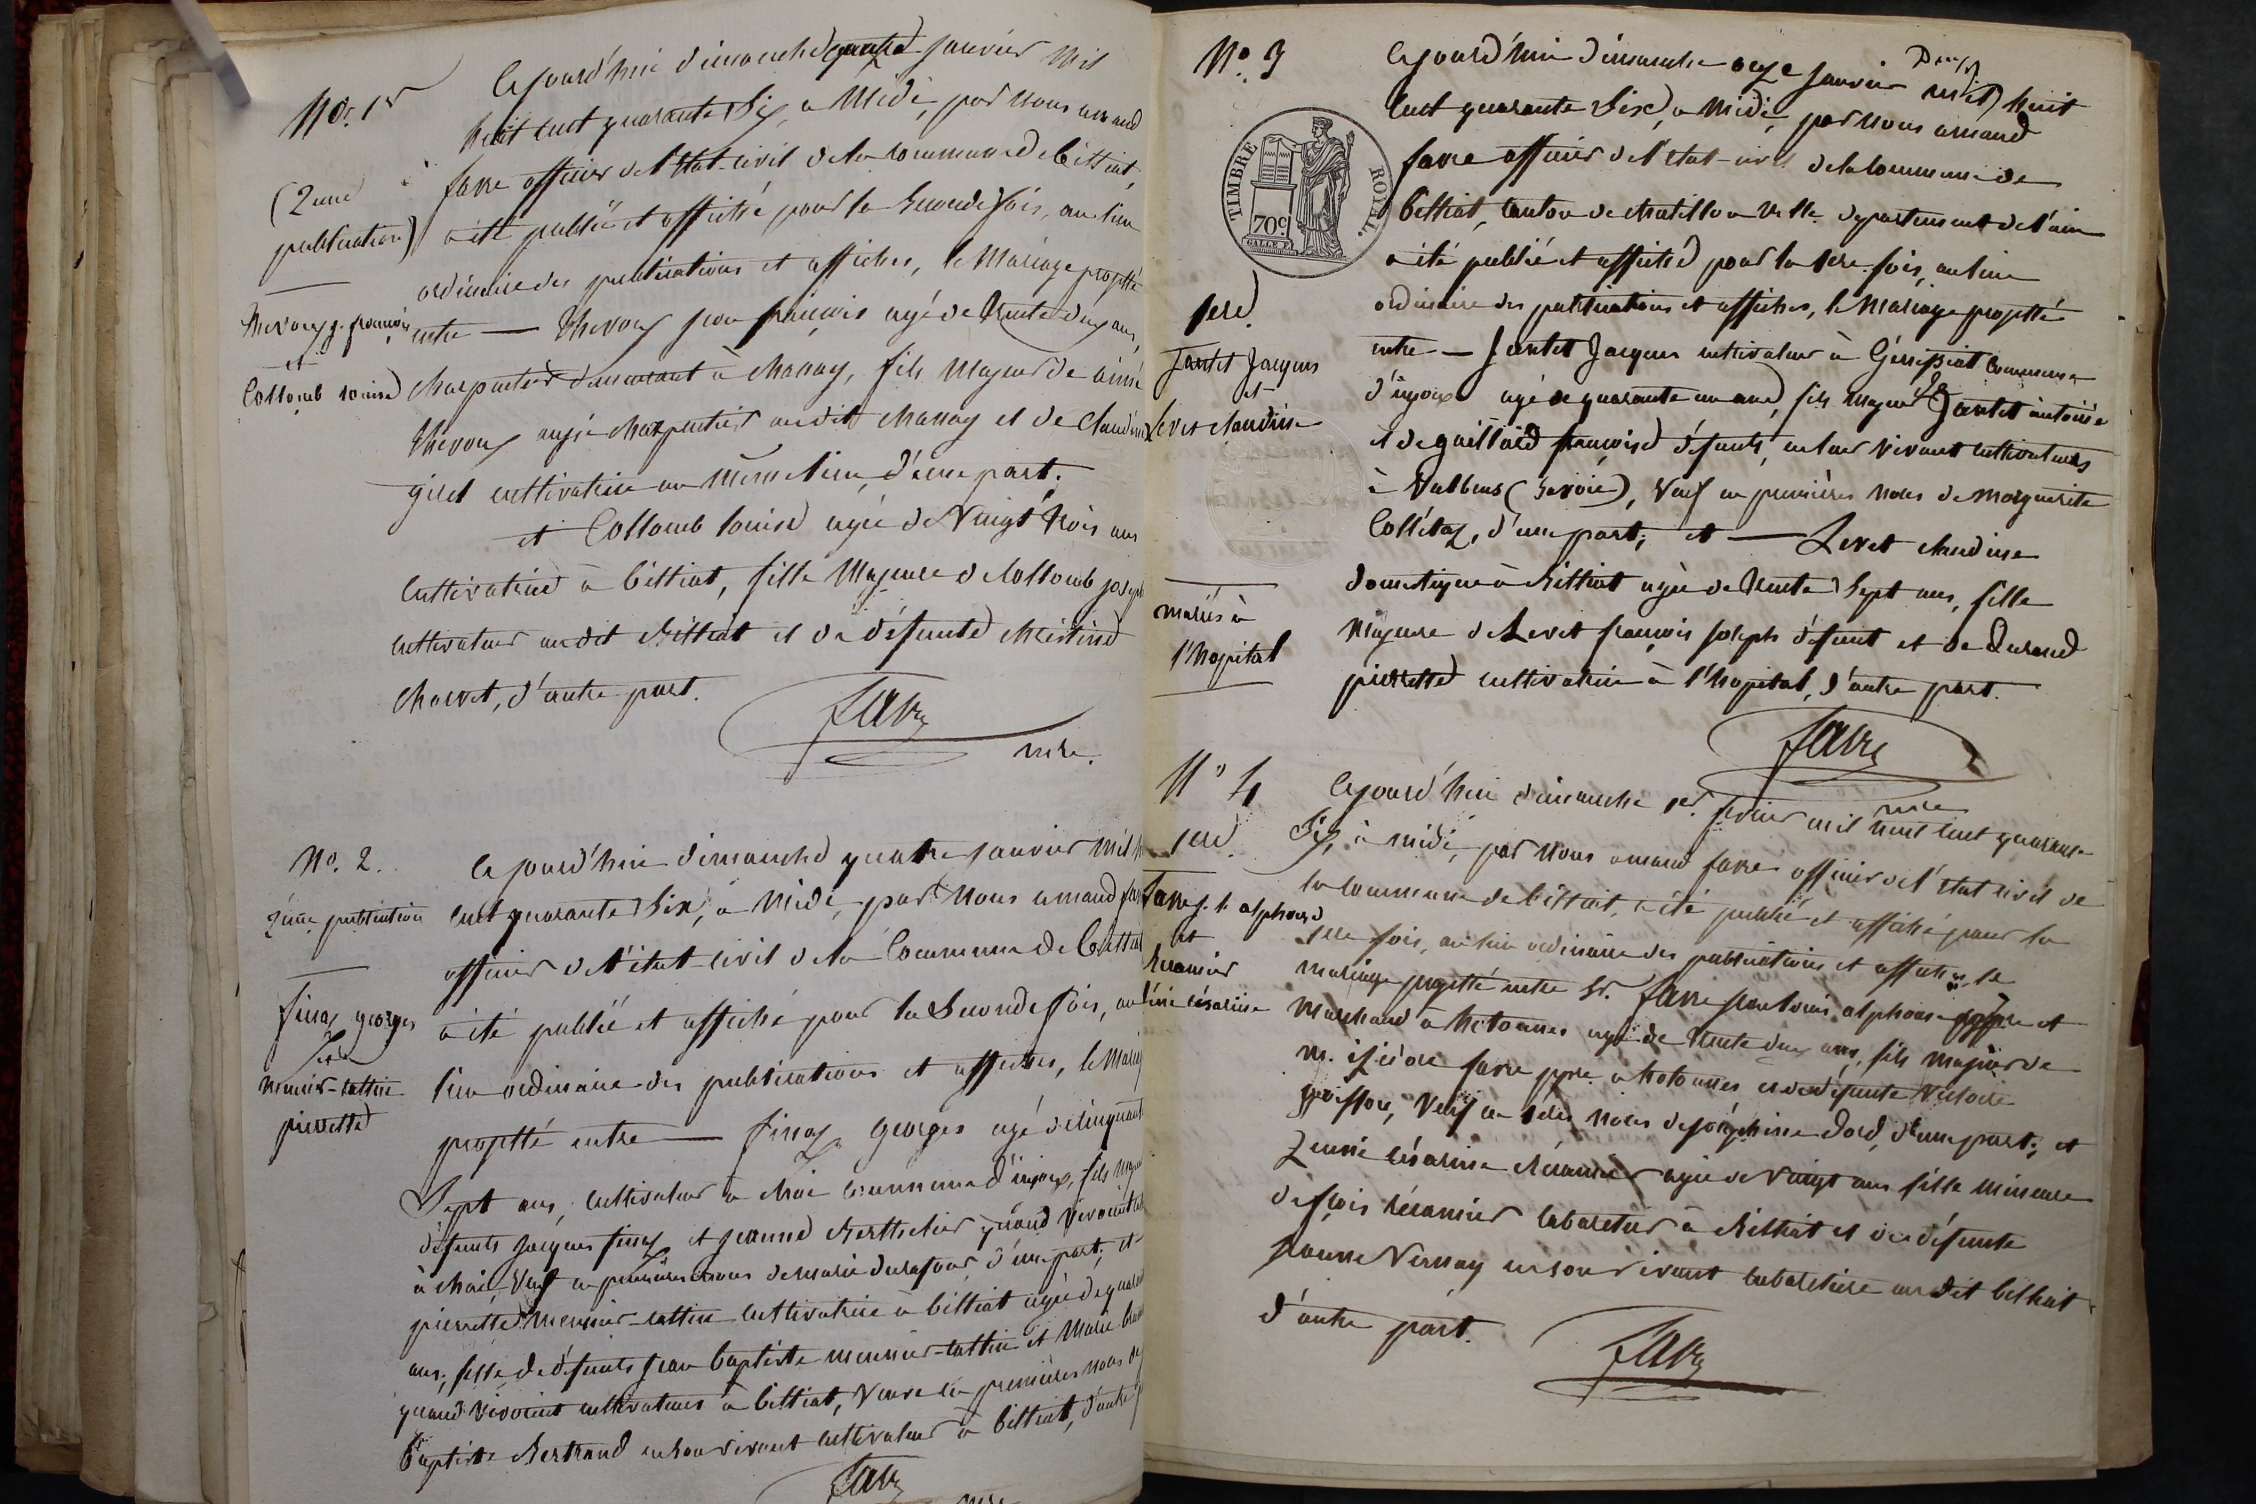 No. 1er
(2eme
publication)
Thevoux j. françois
et
Collomb louise
Cejourd'hui dimanche quatre janvier mil
huit cent quarante Six, a Midi, par nous armand
favre officier de l'état-civil de la commune de billiat,
a été publié et affiché pour la Seconde fois, au lieu
ordinaire des publications et affiches, le Mariage projetté
entre — Thevoux jean françois agé de trente deux ans,
charpentier demeurant à Chanay, fils Majeur de aimé
Thevoux aussi charpentier audit Chanay et de Claudine
cultivatrice au même lieu, d'une part;
et Collomb louise agée de Vingt trois ans
Cultivatrice à billiat, fille Majeure de Collomb joseph
cultivateur audit Billiat et de défunte Christine
Charvet, d'autre part.
favre
mre.
No. 2.
2ème publication
finaz georges
et
Meunier-cattin
pierrette
Cejourd'hui dimanche quatre janvier mil
cent quarante Six, a Midi, par Nous armand
officier de l'état-civil de la Commune de
a été publié et affiché pour la Seconde fois, au
lieu ordinaire des publications et affiches, le
projetté entre — finaz georges agé de cinquante
Sept ans, cultivateur à commune d'injoux, fils
défunts jacques finaz et jeanne Berthelier quand vivoient
à Veuf en premières noces de marie d'une part; et
pierrette Meunier-cattin cultivatrice à billiat agée de
ans, fille de défunts jean baptiste meunier-cattin et Marie
quand vivoient cultivateurs à billiat, Veuve en premières noces de
baptiste Bertrand en son vivant cultivateur à billiat, d'autre
favre
No. 3
TIMBRE ROYAL.
70c
1ere
Jantet Jacques
et
levet claudine
mariés à
l'hopital
Cejourd'hui dimanche onze janvier mil huit
cent quarante Six, a Midi, par nous armand
favre officier de l'état-civil de la commune de
billiat, canton de chatillon departement de l'ain
a été publié et affiché pour la 1ere fois, au lieu
ordinaire des publications et affiches, le Mariage projetté
entre — Jantet Jacques cultivateur à Génissiat commune
d'injoux agé de quarante un ans, fils majeur de Jantet antoine
et de gaillard françoise défunts, en leur vivant cultivateurs
à Vulbens (Savoie), Veuf en premières noces de Marguerite
Collétaz, d'une part; et — Levet claudine
domestique à Billiat agée de trente Sept ans, fille
Majeure de Levet françois joseph défunt et de Durand
pierrette cultivatrice à l'hopital, d'autre part.
favre
mre
No 4
1ere
favre j. l. alphonse
et
Récamier
césarine
Cejourd'hui dimanche 1er. fevrier mil huit cent quarante
Six, à midi, par Nous armand favre officier de l'état civil de
la commune de billiat, a été publié et affiché pour la
1ere fois, au lieu ordinaire des publications et affiches, le
mariage projetté entre Sr. favre jean louis alphonse et
Marchand à hotonnes agé de trente deux ans, fils majeur de
M. favre à hotonnes et de défunte Victoire
Veuf en 1eres noces de joséphine d'une part; et
Zennie césarine Récamier agée de Vingt ans fille mineure
de fçois Récamier cabaretier à Billiat et de défunte
jeanne Vernay en son vivant cabaretière audit billiat
d'autre part.
favre